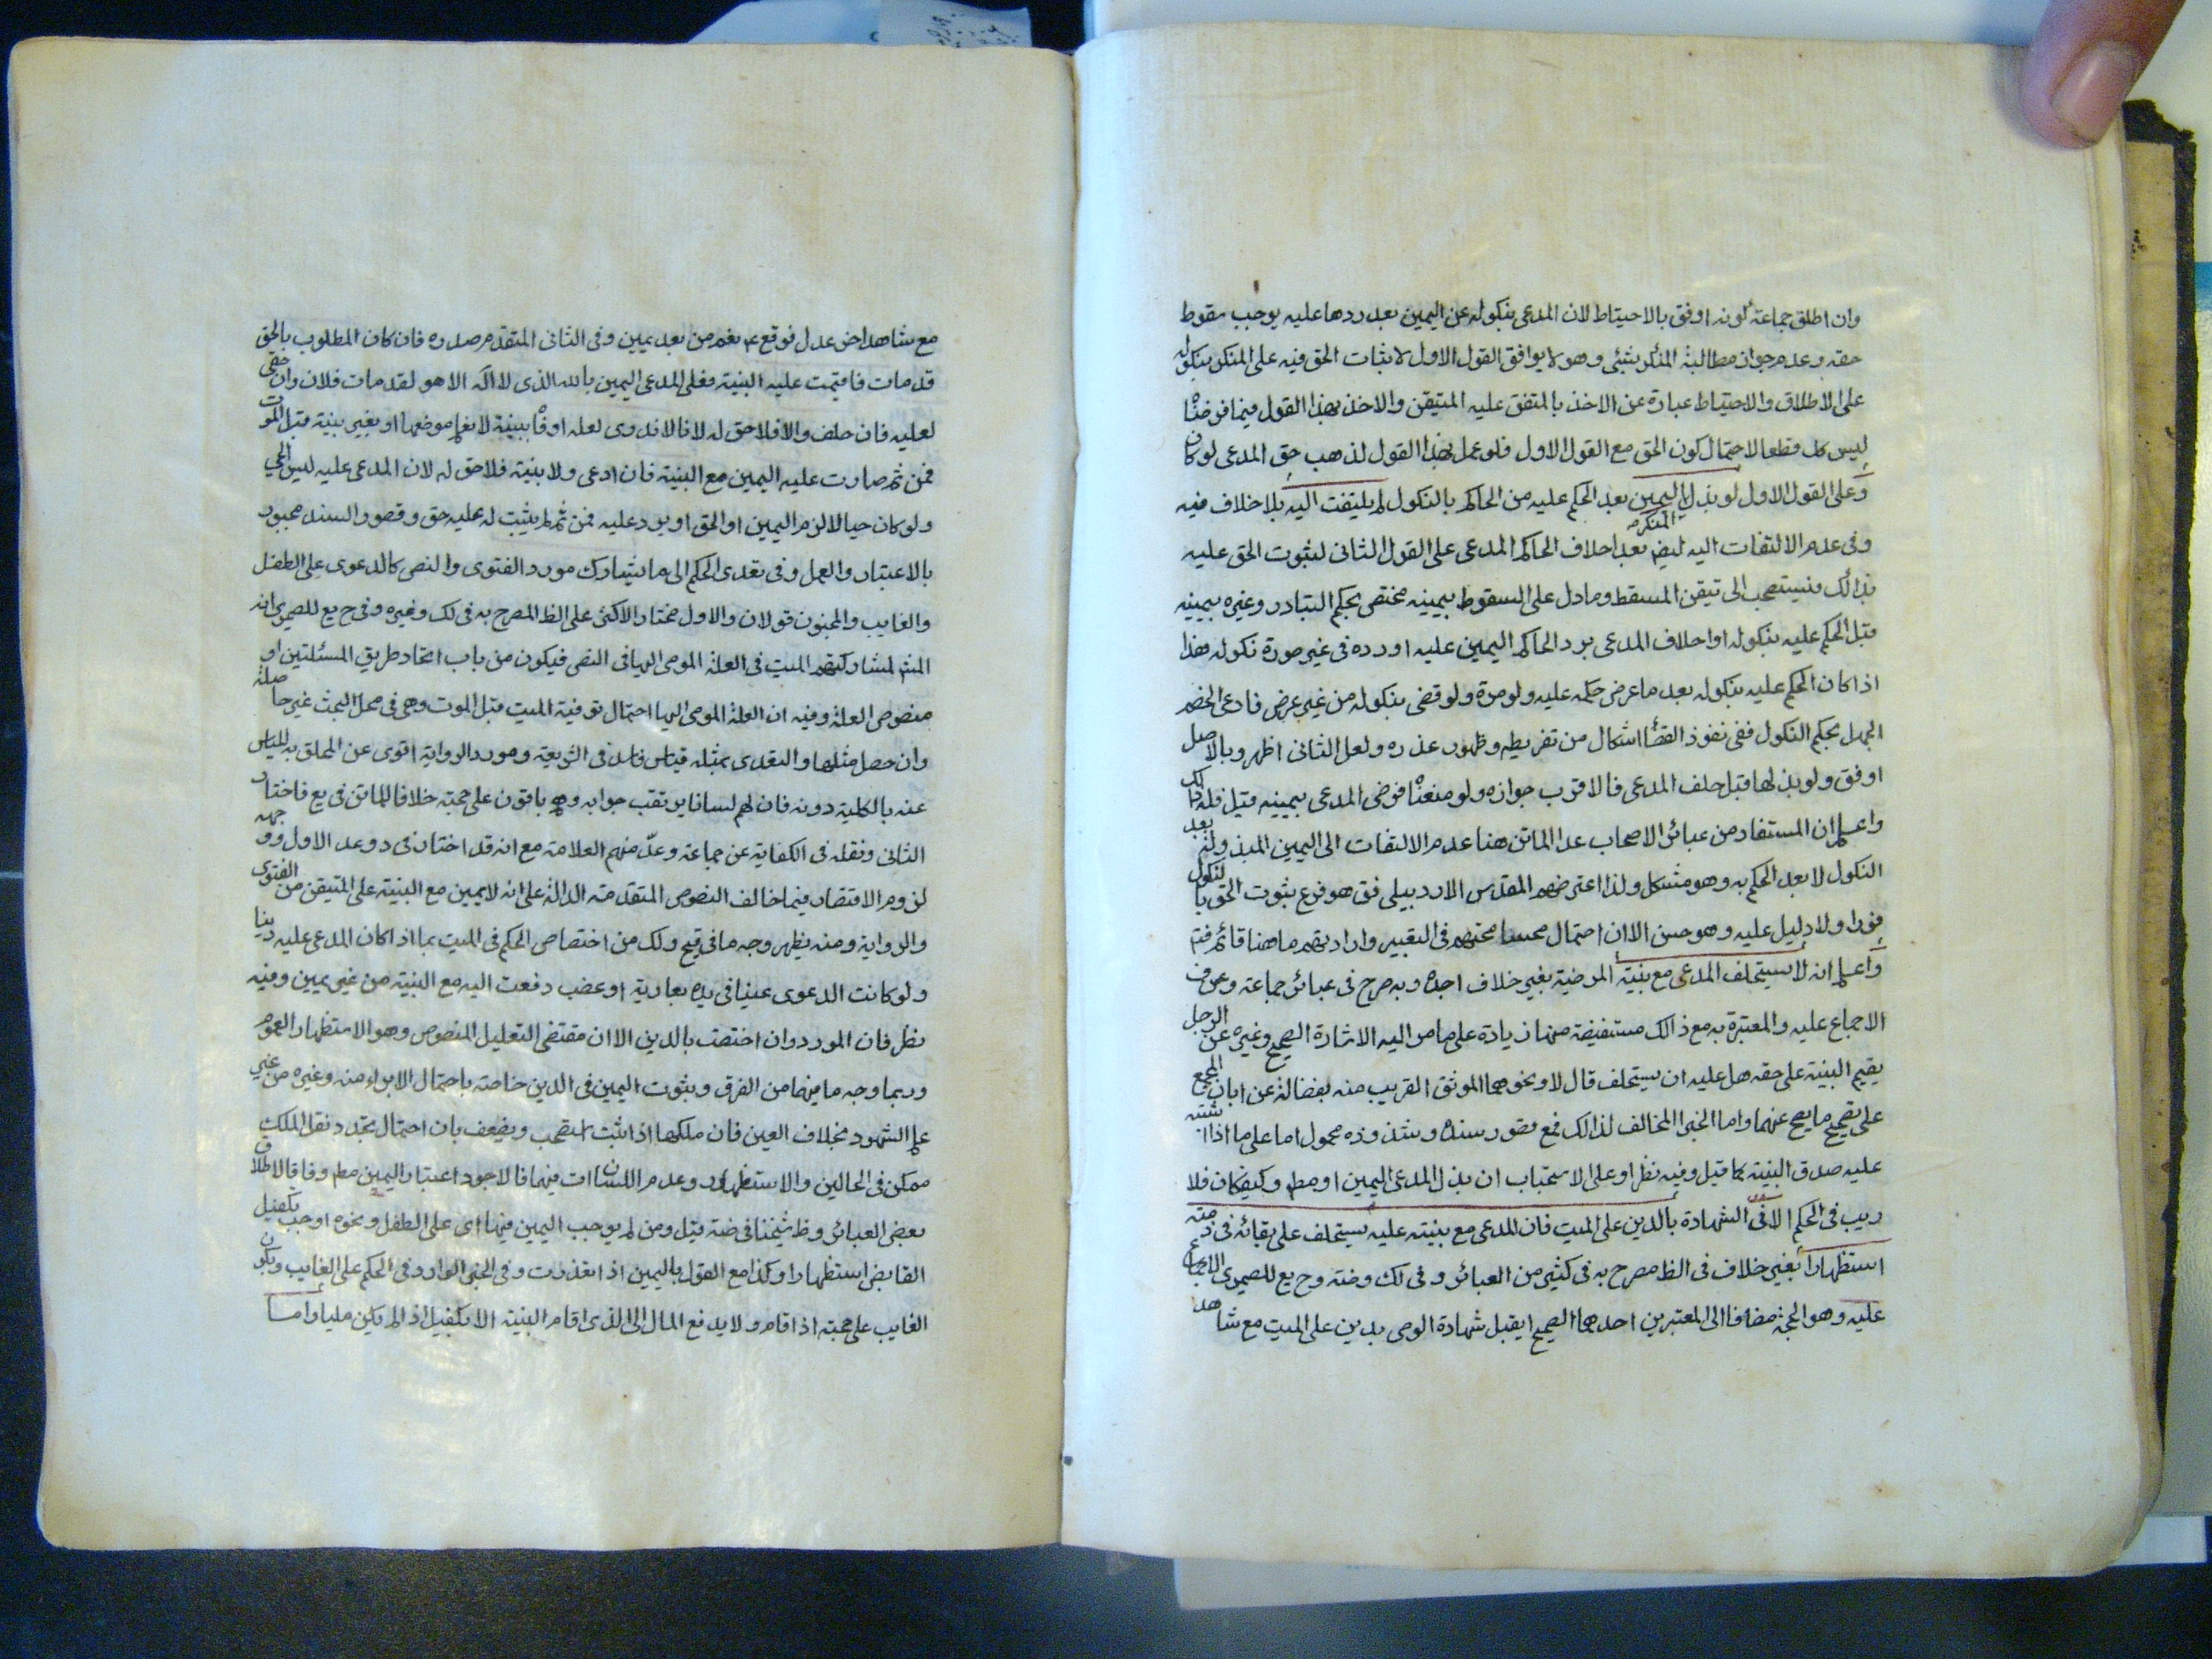 وان اطلق جماعة لكونه اوفق بالاحتياط لان المدعى بنكوله عن اليمين بعد ردها عليه يوجب سقوط
حقه وعدم جواز مطالبة المنكر بشئ وهو لا يوافق القول الاول لاثبات الحق فيه على المنكر بنكوله
على الاطلاق والاحتياط عبارة عن الاخذ بالمتفق عليه المتيقن والاخذ بهذا القول فيما فرضنا
ليس كك قطعا لاحتمال كون الحق مع القول الاول فلو عمل بهذا القول لذهب حق المدعى لو كان
وعلى القول الاول لو بذل اليمين بعد الحكم عليه من الحاكم بالنكول لم يلتفت اليه بلا خلاف فيه
وفى عدم الالتفات اليه ايض بعد احلاف الحاكم المدعى على القول الثانى لثبوت الحق عليه المنكر
بذالك فيستصحب الى تيقن المسقط وما دل على السقوط بيمينه مختص بحكم التبادر وغيره بيمينه
قبل الحكم عليه بنكوله او احلاف المدعى برد الحاكم اليمين عليه او رده فى غير صورة نكوله هذا
اذا كان الحكم عليه بنكوله بعد ما عرض حكمه عليه ولو مرة ولو قضى بنكوله من غير عرض فادعى الخصم
الجهل بحكم النكول ففى نفوذ القضأ اشكال من تفريطه وظهور عذره ولعل الثانى اظهر وبالاصل
اوفق ولو بذلها قبل حلف المدعى فالاقرب جوازه ولو منعناه فرضى المدعى بيمينه قيل فله ذلك
واعلم ان المستفاد من عبائر الاصحاب عدا الماتن هنا عدم الالتفات الى اليمين المبذولة بعد
النكول لا بعد الحكم به وهو مشكل ولذا اعترضهم المقدس الاردبيلى فق هو فرع ثبوت الحق بالنكول
فورا ولا دليل عليه وهو حسن الا ان احتمال مسامحتهم فى التعبير وارادتهم ما هنا قائم فتم
واعلم انه لا يستحلف المدعى مع بنية المرضية بغير خلاف اجده وبه صرح فى عبائر جماعة وعن ف
الاجماع عليه والمعتبرة به مع ذالك مستفيضة منها زيادة على ما مر اليه الاشارة الصحيح وغيره عن الرجل
يقيم البينة على حقه هل عليه ان يستحلف قال لا ونحوهما الموثق القريب منه بفضالة عن ابان المجمع
على تصحيح ما يصح عنهما واما الخبر المخالف لذالك فمع قصور سنده وشذوذه محمول اما على ما اذا اشتبه
عليه صدق البنية كما قيل وفيه نظر او على الاستحباب ان بذل المدعى اليمين او مط وكيفكان فلا
ريب فى الحكم الا فى الشهادة بالدين على الميت فان المدعى مع بنيته عليه يستحلف على بقائه فى ذمته
استظهارا بغير خلاف فى الظ مصرح به فى كثير من العبائر وفى لك وضة وح يع للصيمرى الاجماع
عليه وهو الحجة مضافا الى المعتبرين احدهما الصحيح ايقبل شهادة الوصى بدين على الميت مع شاهد
مع شاهد اخر عدل فوقع ع نعم من بعد يمين وفى الثانى المتقدم صدره فان كان المطلوب بالحق
قد مات فاقيمت عليه البنية فعلى المدعى اليمين بالله الذى لا اله الا هو لقد مات فلان وان حقى
لعليه فان حلف والا فلا حق له لانا لا ندرى لعله اوفاه ببينة لا نعلم موضعها او بغير بينة قبل الموت
فمن ثم صارت عليه اليمين مع البنية فان ادعى ولا بنية فلا حق له لان المدعى عليه ليس الحى
ولو كان حيا لالزم اليمين او الحق او يرد عليه فمن ثم لم يثبت له عليه حق وقصور السند مجبور
بالاعتبار والعمل وفى تعدى الحكم الى ما يشارك مورد الفتوى والنص كالدعوى على الطفل
والغايب والمجنون قولان والاول مختار الاكثر على الظ المصرح به فى لك وغيره وفى ح يع للصيمرى انه
المش لمشاركتهم الميت فى العلة المومى اليها فى النص فيكون من باب اتحاد طريق المسئلتين او
منصوص العلة وفيه ان العلة المومى اليها احتمال توفية الميت قبل الموت وهى فى محل البحث غير حاصلة
وان حصل مثلها والتعدى بمثله قياس فاسد فى الشريعة ومورد الرواية اقوى عن الملحق به للياس
عنه بالكلية دونه فان لهم لسانا يرتقب جوابه وهم باقون على حجته خلافا للماتن فى يع فاختار
الثانى ونقله فى الكفاية عن جماعة وعدّ منهم العلامة مع انه قد اختار فى د وعد الاول ووجهه
لزوم الاقتصار فيما خالف النصوص المتقدمة الدالة على انه لا يمين مع البنية على المتيقن من الفتوى
والرواية ومنه يظهر وجه ما فى يع ولك من اختصاص الحكم فى الميت بما اذا كان المدعى عليه دينا
ولو كانت الدعوى عينا فى يده بعارية او غصب دفعت اليه مع البنية من غير يمين وفيه
نظر فان المورد وان اختصت بالدين الا ان مقتضى التعليل المنصوص وهو الاستظهار العموم
وربما وجه ما فيهما من الفرق وبثوت اليمين فى الدين خاصة باحتمال الابراء منه وغيره من غير
علم الشهود بخلاف العين فان ملكها اذا ثبت استصحب ويضعف بان احتمال تجدد نقل الملك
ممكن فى الحالين والاستظهار وعدم اللسان ات فيهما فالاجود اعتبار اليمين مط وفاقا لاطلاق
بعض العبائر وظ شيخنا فى ضة قيل ومن لم يوجب اليمين فيها اى على الطفل ونحوه اوجب بكفيل
القابض استظهارا وكذا مع القول باليمين اذا تعذرت وفى الخبر الوارد فى الحكم على الغايب ويكون
الغايب على حجته اذا قدم ولا يدفع المال الى الذى اقام البنية الا بكفيل اذا لم يكن مليا واما